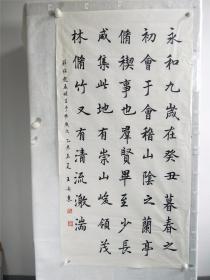 永和九歲在癸丑暮春之
初會于會稽山陰之蘭亭
脩稧事也羣賢畢至少長
咸集此地有崇山峻領茂
林脩竹又有清流激湍